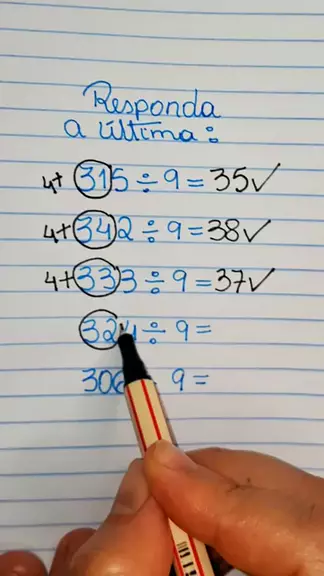 Responda
a última:
4+ 315 ÷ 9 = 35 ✓
4+ 342 ÷ 9 = 38 ✓
4+ 333 ÷ 9 = 37 ✓
324 ÷ 9 =
306 9 =